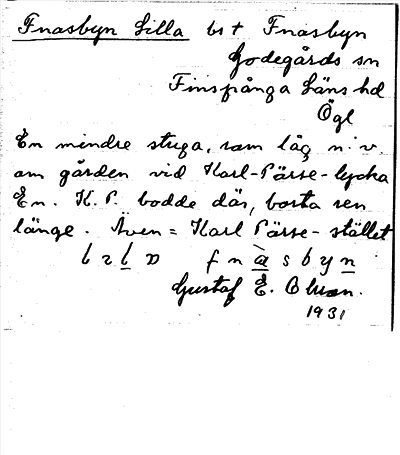 Fnasbyn Lilla bst Fnasbyn
Godegårds sn
Finspånga Läns hd
Ögl
En mindre stuga, som låg n.v.
om gården vid Karl-Pärse-lycka
En. K. P. bodde där, borta sen
länge. Även = Karl Pärse-stället
fnàsbyn
Gustaf E. Bluen.
1931